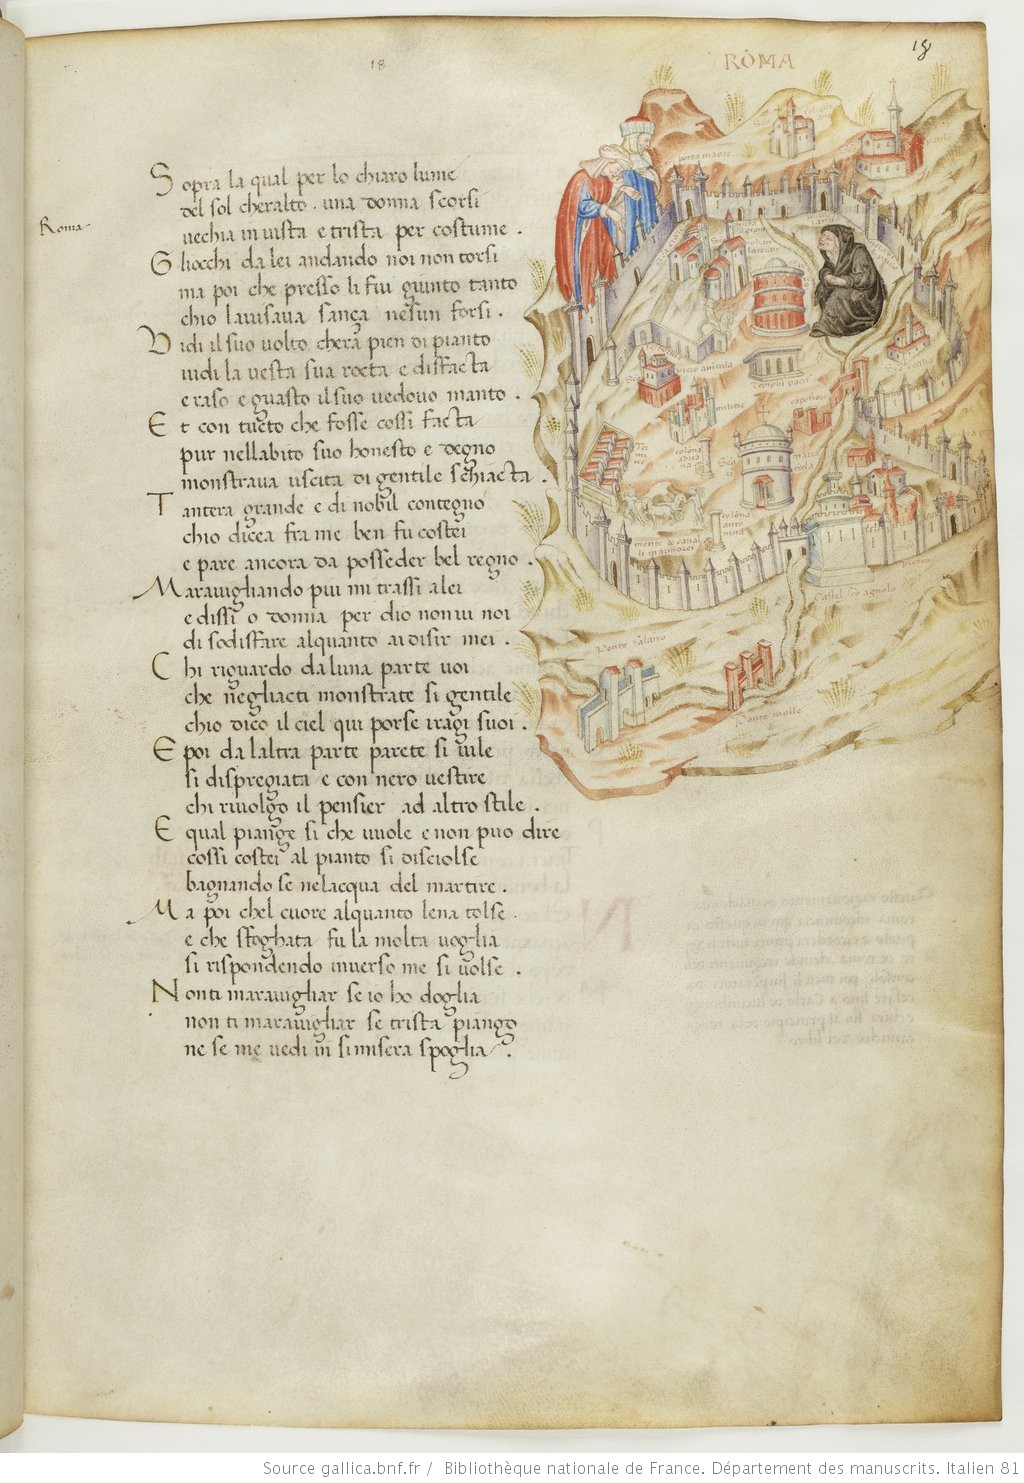 18
18
ROMA
Roma
Sopra la qual per lo chiaro lume
del sol cheralto . una donna scorsi
vechia in vista e trista per costume .
Gliocchi da lei andando noi non torsi
ma poi che presso li fui giunto tanto
chio lavisava sança nesun forsi .
Vidi il suo volto chera pien di pianto
vidi la vesta sua rocta e disfacta
e raso e guasto il suo vedovo manto .
Et con tucto che fosse cossi facta
pur nellabito suo honesto e degno
monstrava uscita di gentile schiacta .
Tantera grande e di nobil contegno
chio dicea fra me ben fu costei
e pare ancora da posseder bel regno .
Maravigliando piu mi trassi a lei
e dissi o donna per dio non vi noi
di sodisfare alquanto ai disir mei .
Chi riguardo da luna parte voi
che negliacti monstrate si gentile
chio dico il ciel qui porse iragi suoi .
E poi da laltra parte parete si vile
si dispregiata e con nero vestire
chi rivolgo il pensier ad altro stile .
E qual piange si che vuole e non puo dire
cossi costei al pianto si disciolse
bagnando se nelacqua del martire .
Ma poi chel cuore alquanto lena tolse .
e che sfoghata fu la molta voglia
si rispondendo inverso me si volse .
Non ti maravigliar se io ho doglia
non ti maravigliar se trista piango
ne se me vedi in si misera spoglia .
porta maore
Templu pacis
Ter
me
ne
colona
militie
colona
anto
nina
monte de caval
li marmorei
Castel sco agnolo
Ponte salaro
Ponte molle
Source gallica.bnf.fr / Bibliothèque nationale de France. Département des manuscrits. Italien 81